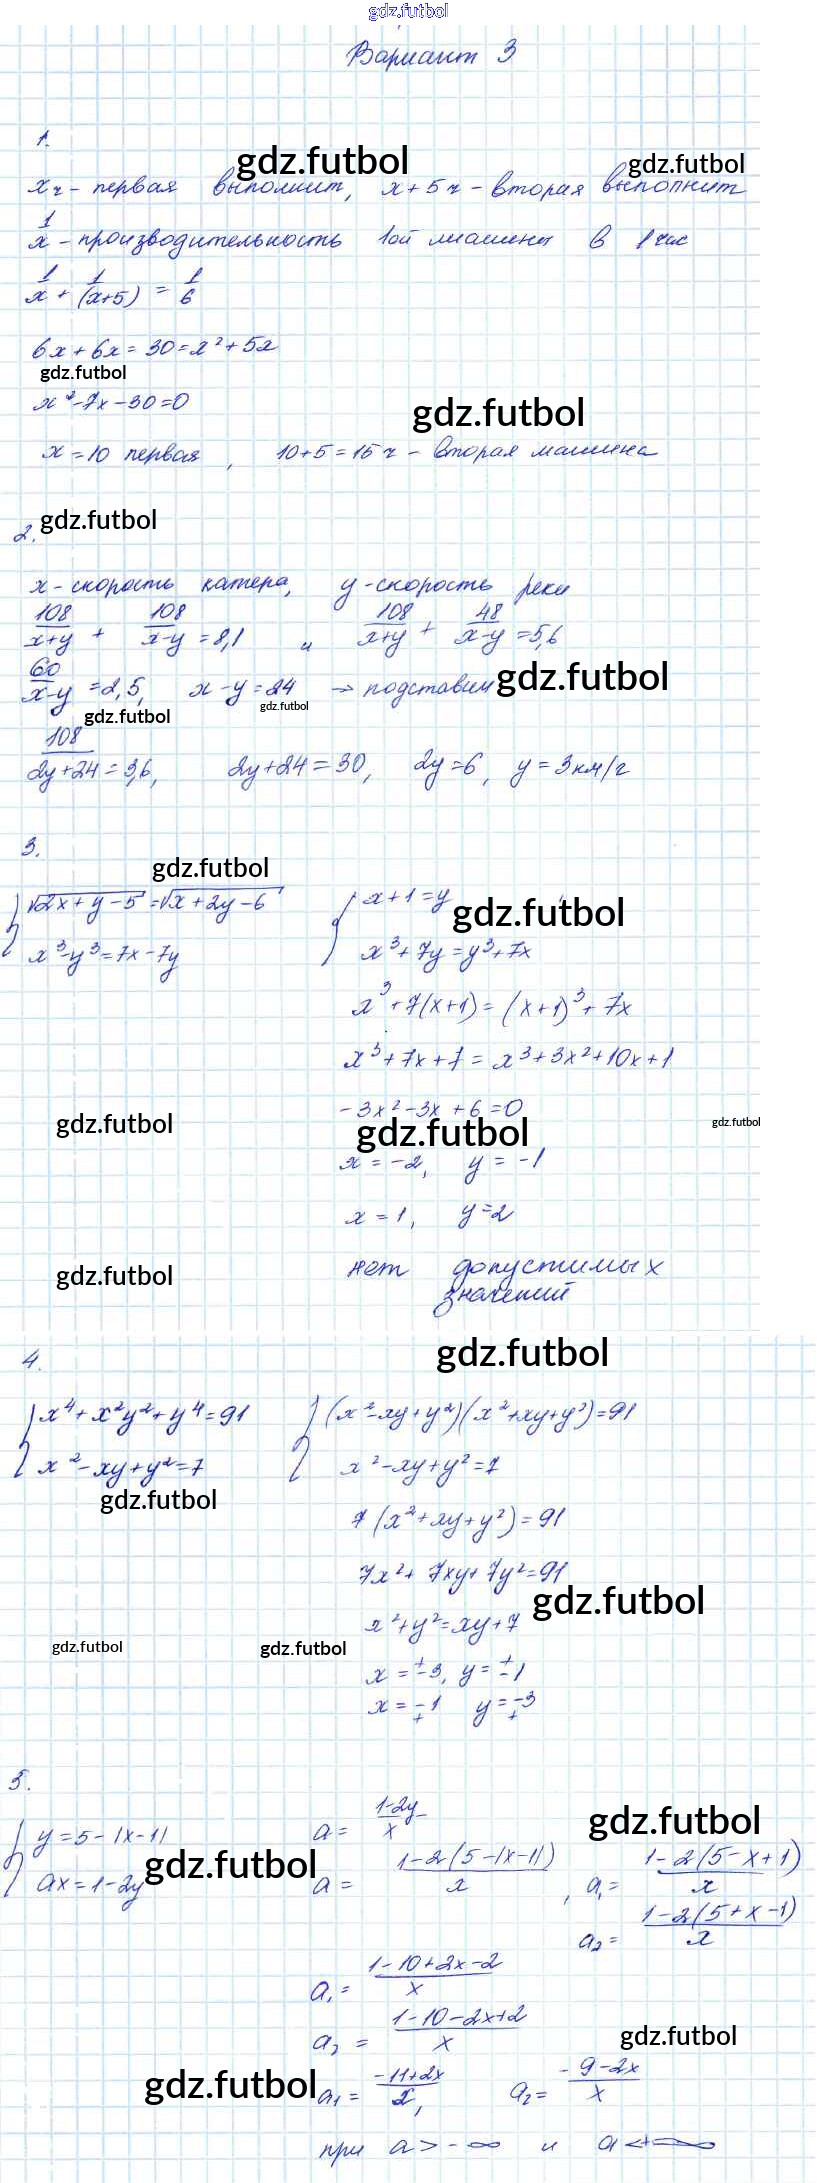 gdz.futbol
Вариант 3
1.
gdz.futbol
gdz.futbol
x ч - первая выполнит, x+5 ч - вторая выполнит
1/x - производительность 1ой машины в 1 час
1/x + 1/(x+5) = 1/6
6x+6x = 30 = x²+5x
gdz.futbol
x²-7x-30=0
gdz.futbol
x=10 первая, 10+5=15 ч - вторая машина
gdz.futbol
2.
x - скорость катера, y - скорость реки
108/(x+y) + 108/(x-y) = 8,1 и 108/(x+y) + 48/(x-y) = 5,6
60/(x-y) = 2,5, x-y=24 → подставим
gdz.futbol
gdz.futbol
gdz.futbol
108/(2y+24) = 3,6, 2y+24=30, 2y=6, y=3км/ч
3.
gdz.futbol
{ √(2x+y-5) = √(x+2y-6) { x+1=y
gdz.futbol
x³-y³=7x-7y x³+7y=y³+7x
x³+7(x+1)=(x+1)³+7x
x³+7x+7=x³+3x²+10x+1
-3x²-3x+6=0
gdz.futbol
gdz.futbol
gdz.futbol
x=-2, y=-1
x=1, y=2
gdz.futbol
нет допустимых
значений
gdz.futbol
4.
{ x⁴+x²y²+y⁴=91 { (x²-xy+y²)(x²+xy+y²)=91
x²-xy+y²=7 x²-xy+y²=7
gdz.futbol
7(x²+xy+y²)=91
7x²+7xy+7y²=91
gdz.futbol
x²+y²=xy+7
gdz.futbol
gdz.futbol
x=±3, y=±1
x=∓1 y=∓3
5.
{ y=5-|x-1| a = (1-2y)/x
gdz.futbol
ax=1-2y a = (1-2(5-|x-1|))/x, a₁ = (1-2(5-x+1))/x
gdz.futbol
a₂ = (1-2(5+x-1))/x
a₁ = (1-10+2x-2)/x
a₂ = (1-10-2x+2)/x
gdz.futbol
gdz.futbol
a₁ = (-11+2x)/x, a₂ = (-9-2x)/x
при a>-∞ и a<+∞